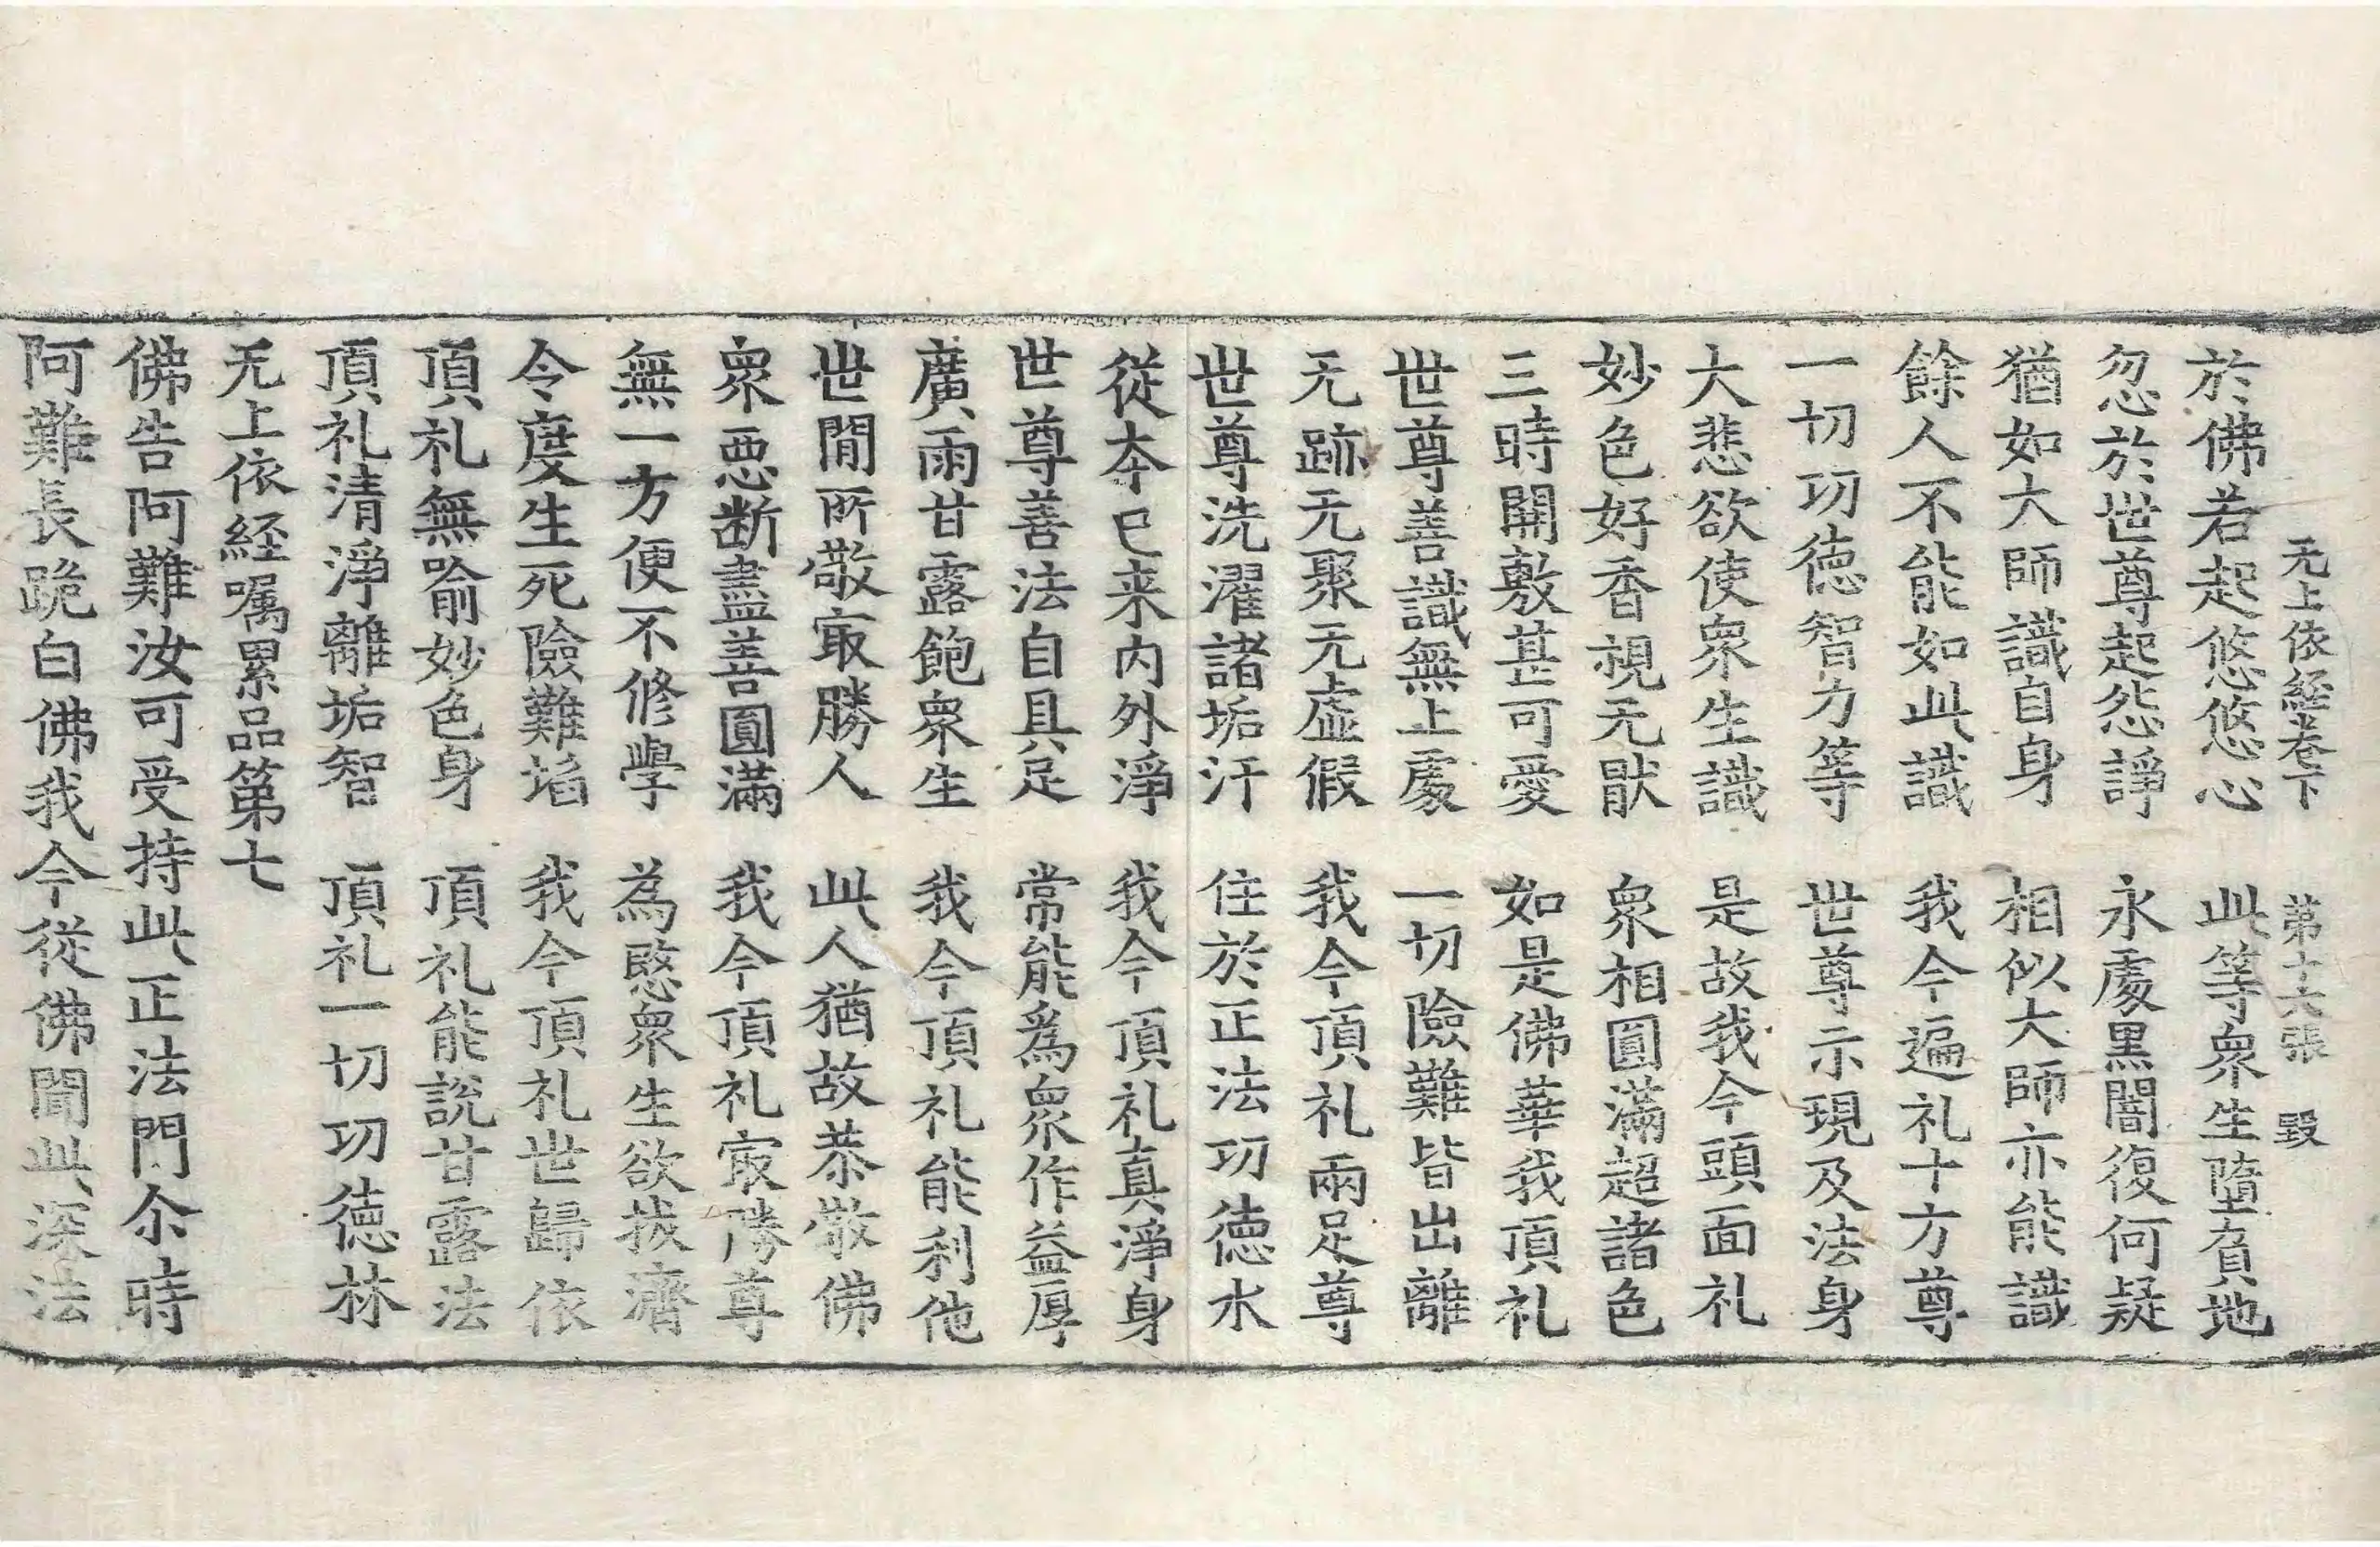 无上依経卷下　第十六張　毀
於佛若起悠悠心　此等衆生墮負地
忽於世尊起怨諍　永處黒闇復何疑
猶如大師識自身　相似大師亦能識
餘人不能如此識　我今遍礼十方尊
一切功徳智力等　世尊示現及法身
大悲欲使衆生識　是故我今頭面礼
妙色好香視无猒　衆相圓滿超諸色
三時開敷甚可愛　如是佛華我頂礼
世尊善識無上處　一切險難皆出離
无跡无聚无虛假　我今頂礼兩足尊
世尊洗濯諸垢汙　住於正法功徳水
從本已来内外淨　我今頂礼真淨身
世尊善法自具足　常能為衆作益厚
廣雨甘露飽衆生　我今頂礼能利他
世間所敬㝡勝人　此人猶故恭敬佛
衆惡断盡善圓滿　我今頂礼㝡勝尊
無一方便不修學　為愍衆生欲拔濟
令度生死險難埳　我今頂礼世歸依
頂礼無喻妙色身　頂礼能說甘露法
頂礼清淨離垢智　頂礼一切功徳林
无上依経嘱累品第七
佛告阿難汝可受持此正法門尒時
阿難長跪白佛我今從佛聞此深法